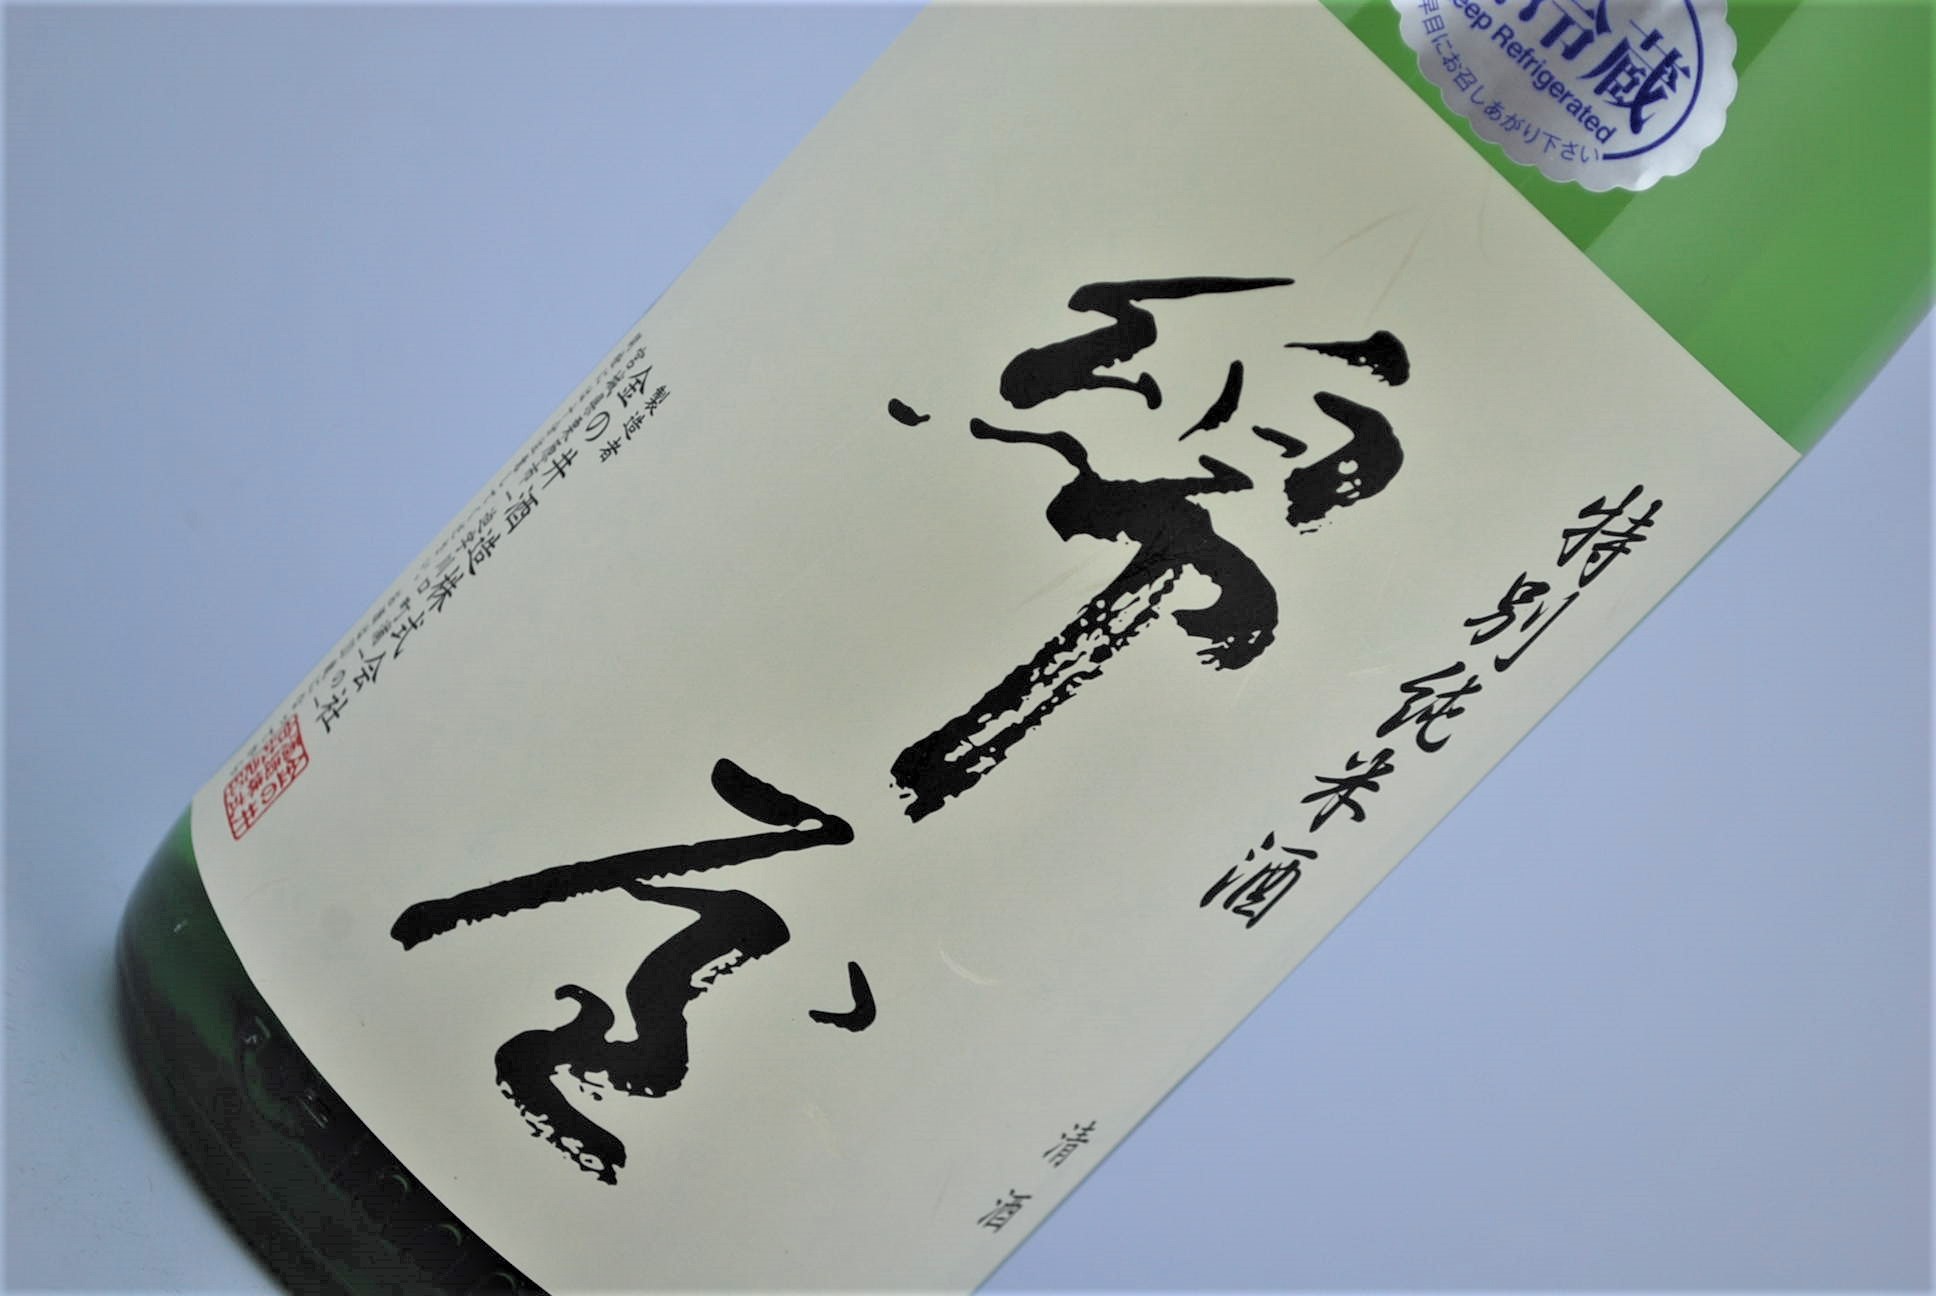 冷蔵
Keep Refrigerated
早目にお召しあがり下さい
特別純米酒
綿屋
清酒
製造者
金の井酒造株式会社